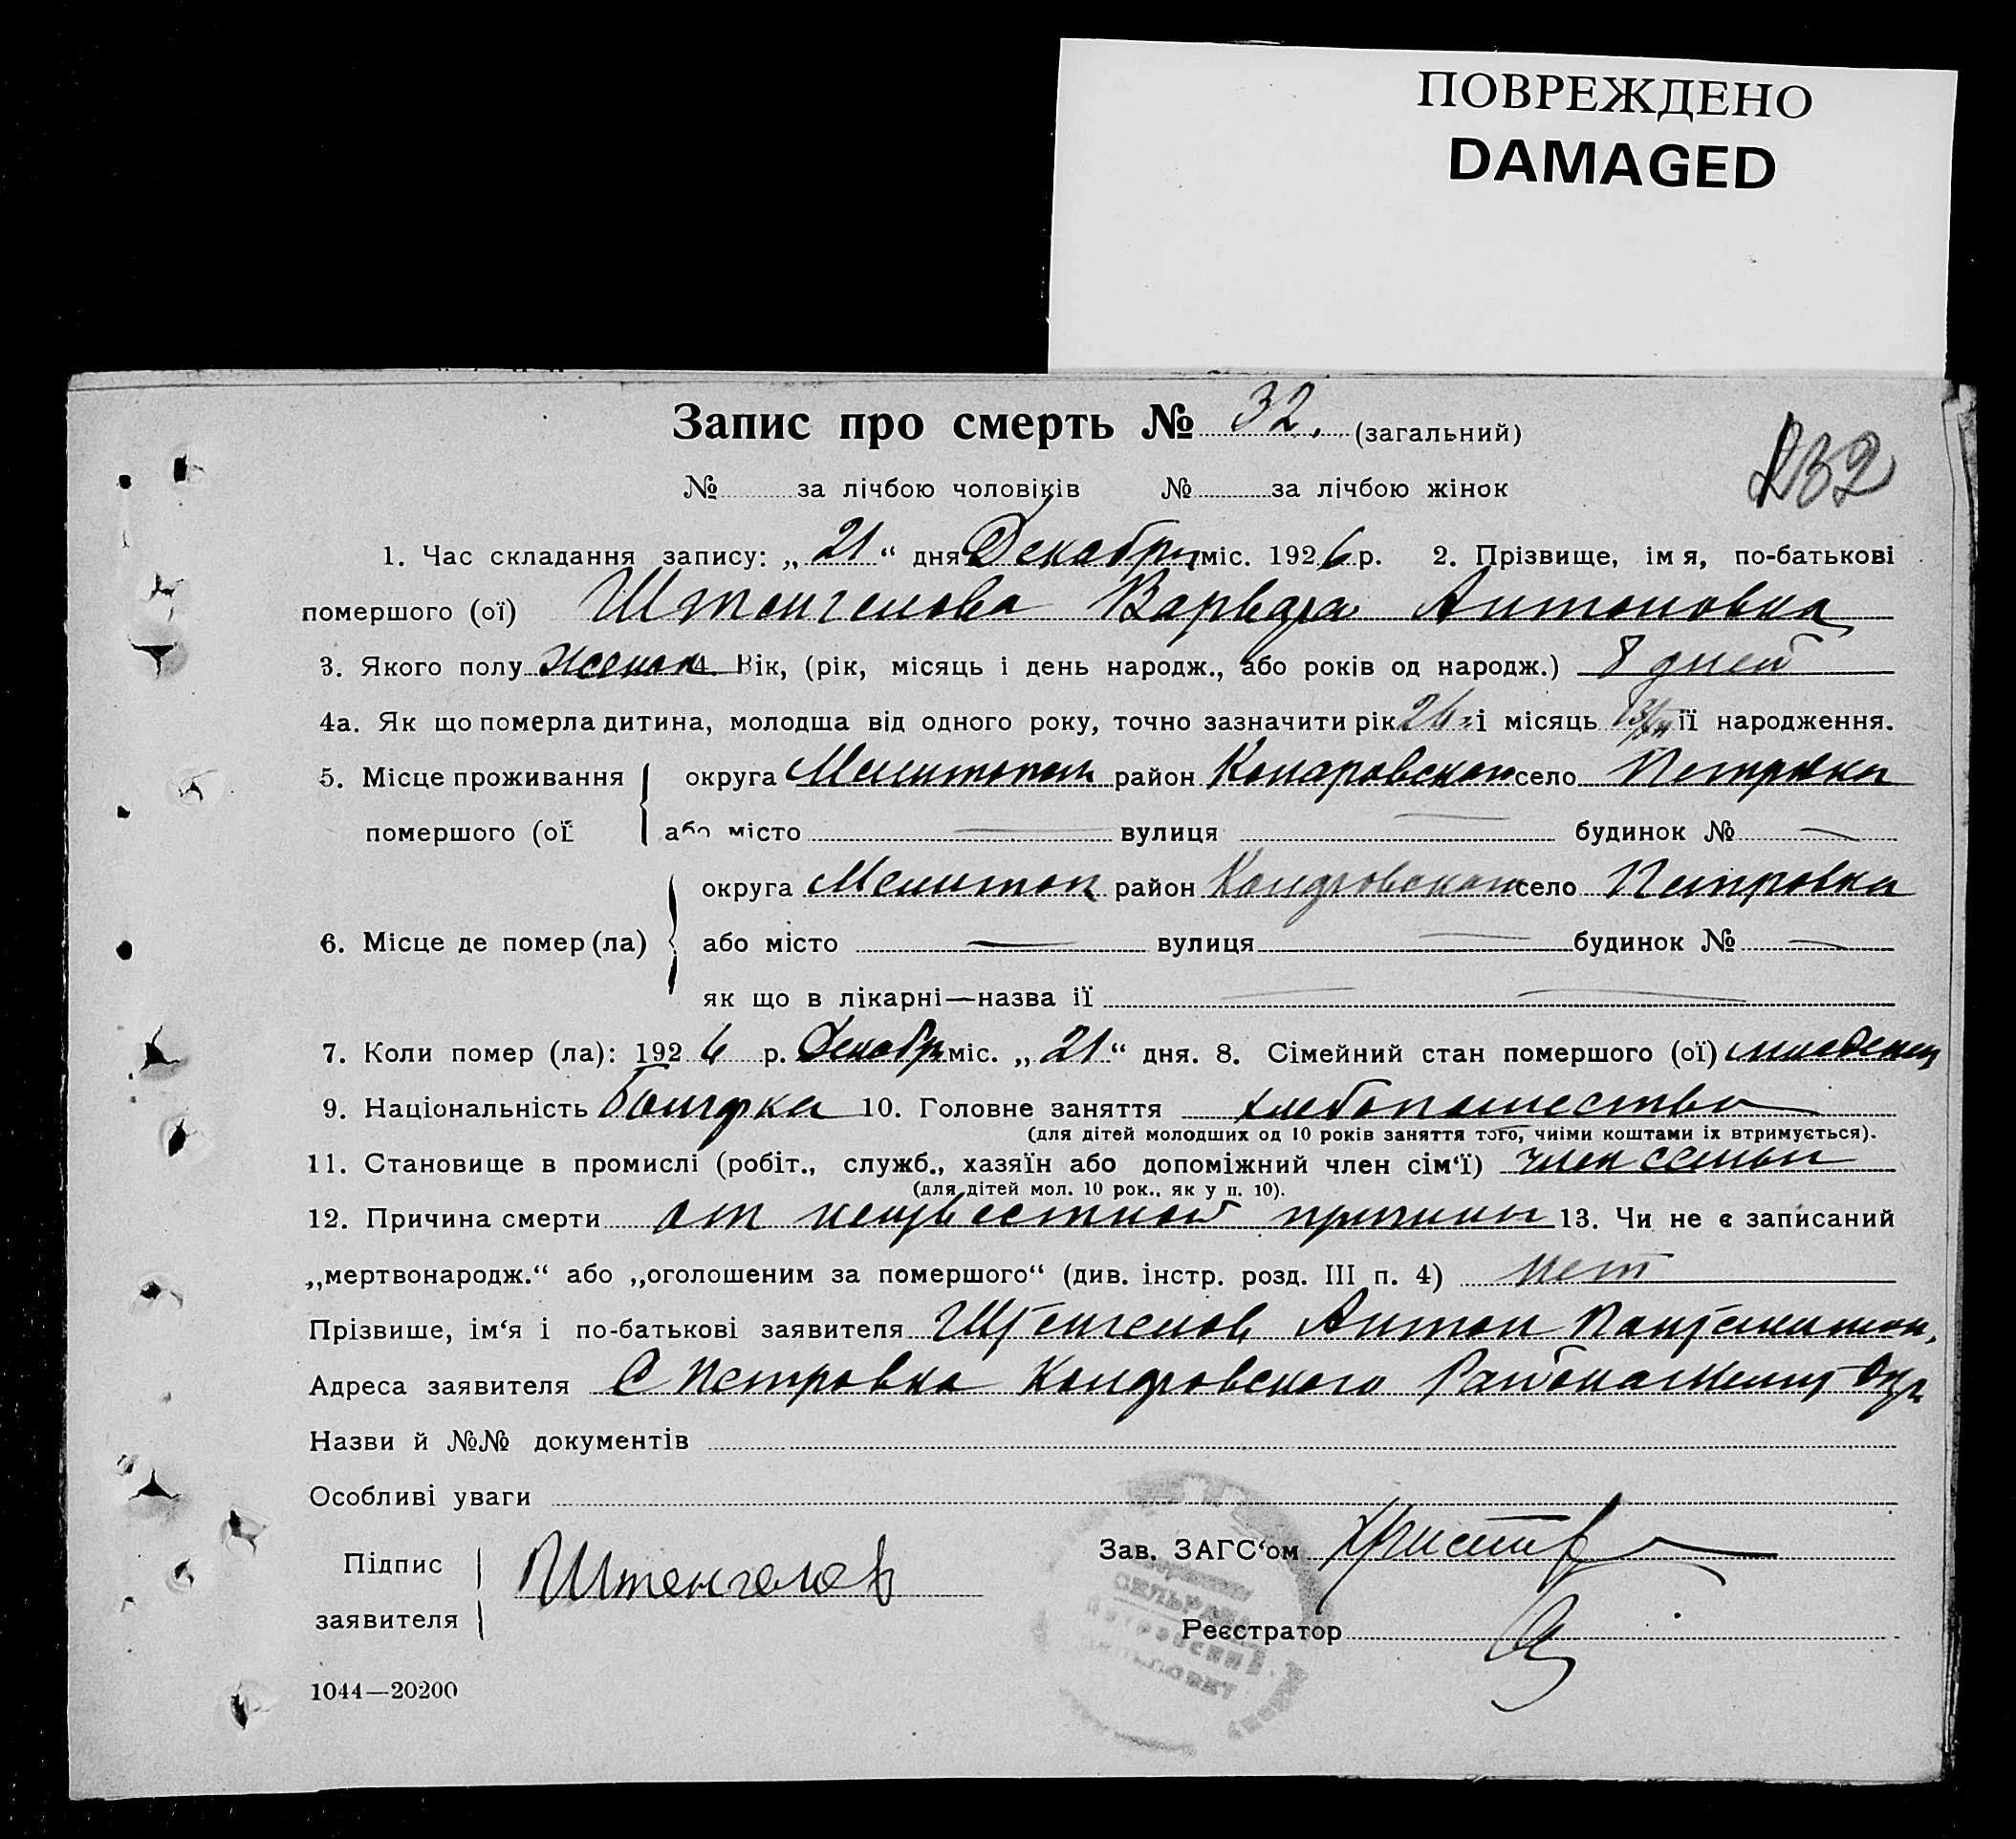 ПОВРЕЖДЕНО
DAMAGED
Запис про смерть № 32. (загальний)
232
№ за лічбою чоловіків № за лічбою жінок
1. Час складання запису: „21“ дня Декабря міс. 1926 р. 2. Прізвище, імя, по-батькові
помершого (ої) Штенгелова Варвара Антоновна
3. Якого полу женск 4. Вік, (рік, місяць і день народж., або років од народж.) 8 дней
4а. Як що померла дитина, молодша від одного року, точно зазначити рік 26 і місяць 13/XII її народження.
5. Місце проживання округа Мелитополь район село Петровка
помершого (ої або місто — вулиця — будинок № —
округа Мелитоп район село Петровка
6. Місце де помер (ла) або місто — вулиця — будинок № —
як що в лікарні—назва її — —
7. Коли помер (ла): 1926 р. Декабр міс. „21“ дня. 8. Сімейний стан помершого (ої) младенец
9. Національність Болгарка 10. Головне заняття хлебопашество
(для дітей молодших од 10 років заняття того, чиїми коштами їх втримується).
11. Становище в промислі (робіт., служб., хазяїн або допоміжний член сім‘ї) член семьи
(для дітей мол. 10 рок., як у п. 10).
12. Причина смерти от неизвестной причины 13. Чи не є записаний
„мертвонародж.“ або „оголошеним за помершого“ (див. інстр. розд. III п. 4) нет
Прізвише, ім‘я і по-батькові заявителя Штенгелов Антон Пантелимон.
Адреса заявителя С Петровка Района Окр
Назви й №№ документів
Особливі уваги
Підпис заявителя Штенгелов
Зав. ЗАГС‘ом
СЕЛЬРАДА
Реєстратор
1044—20200